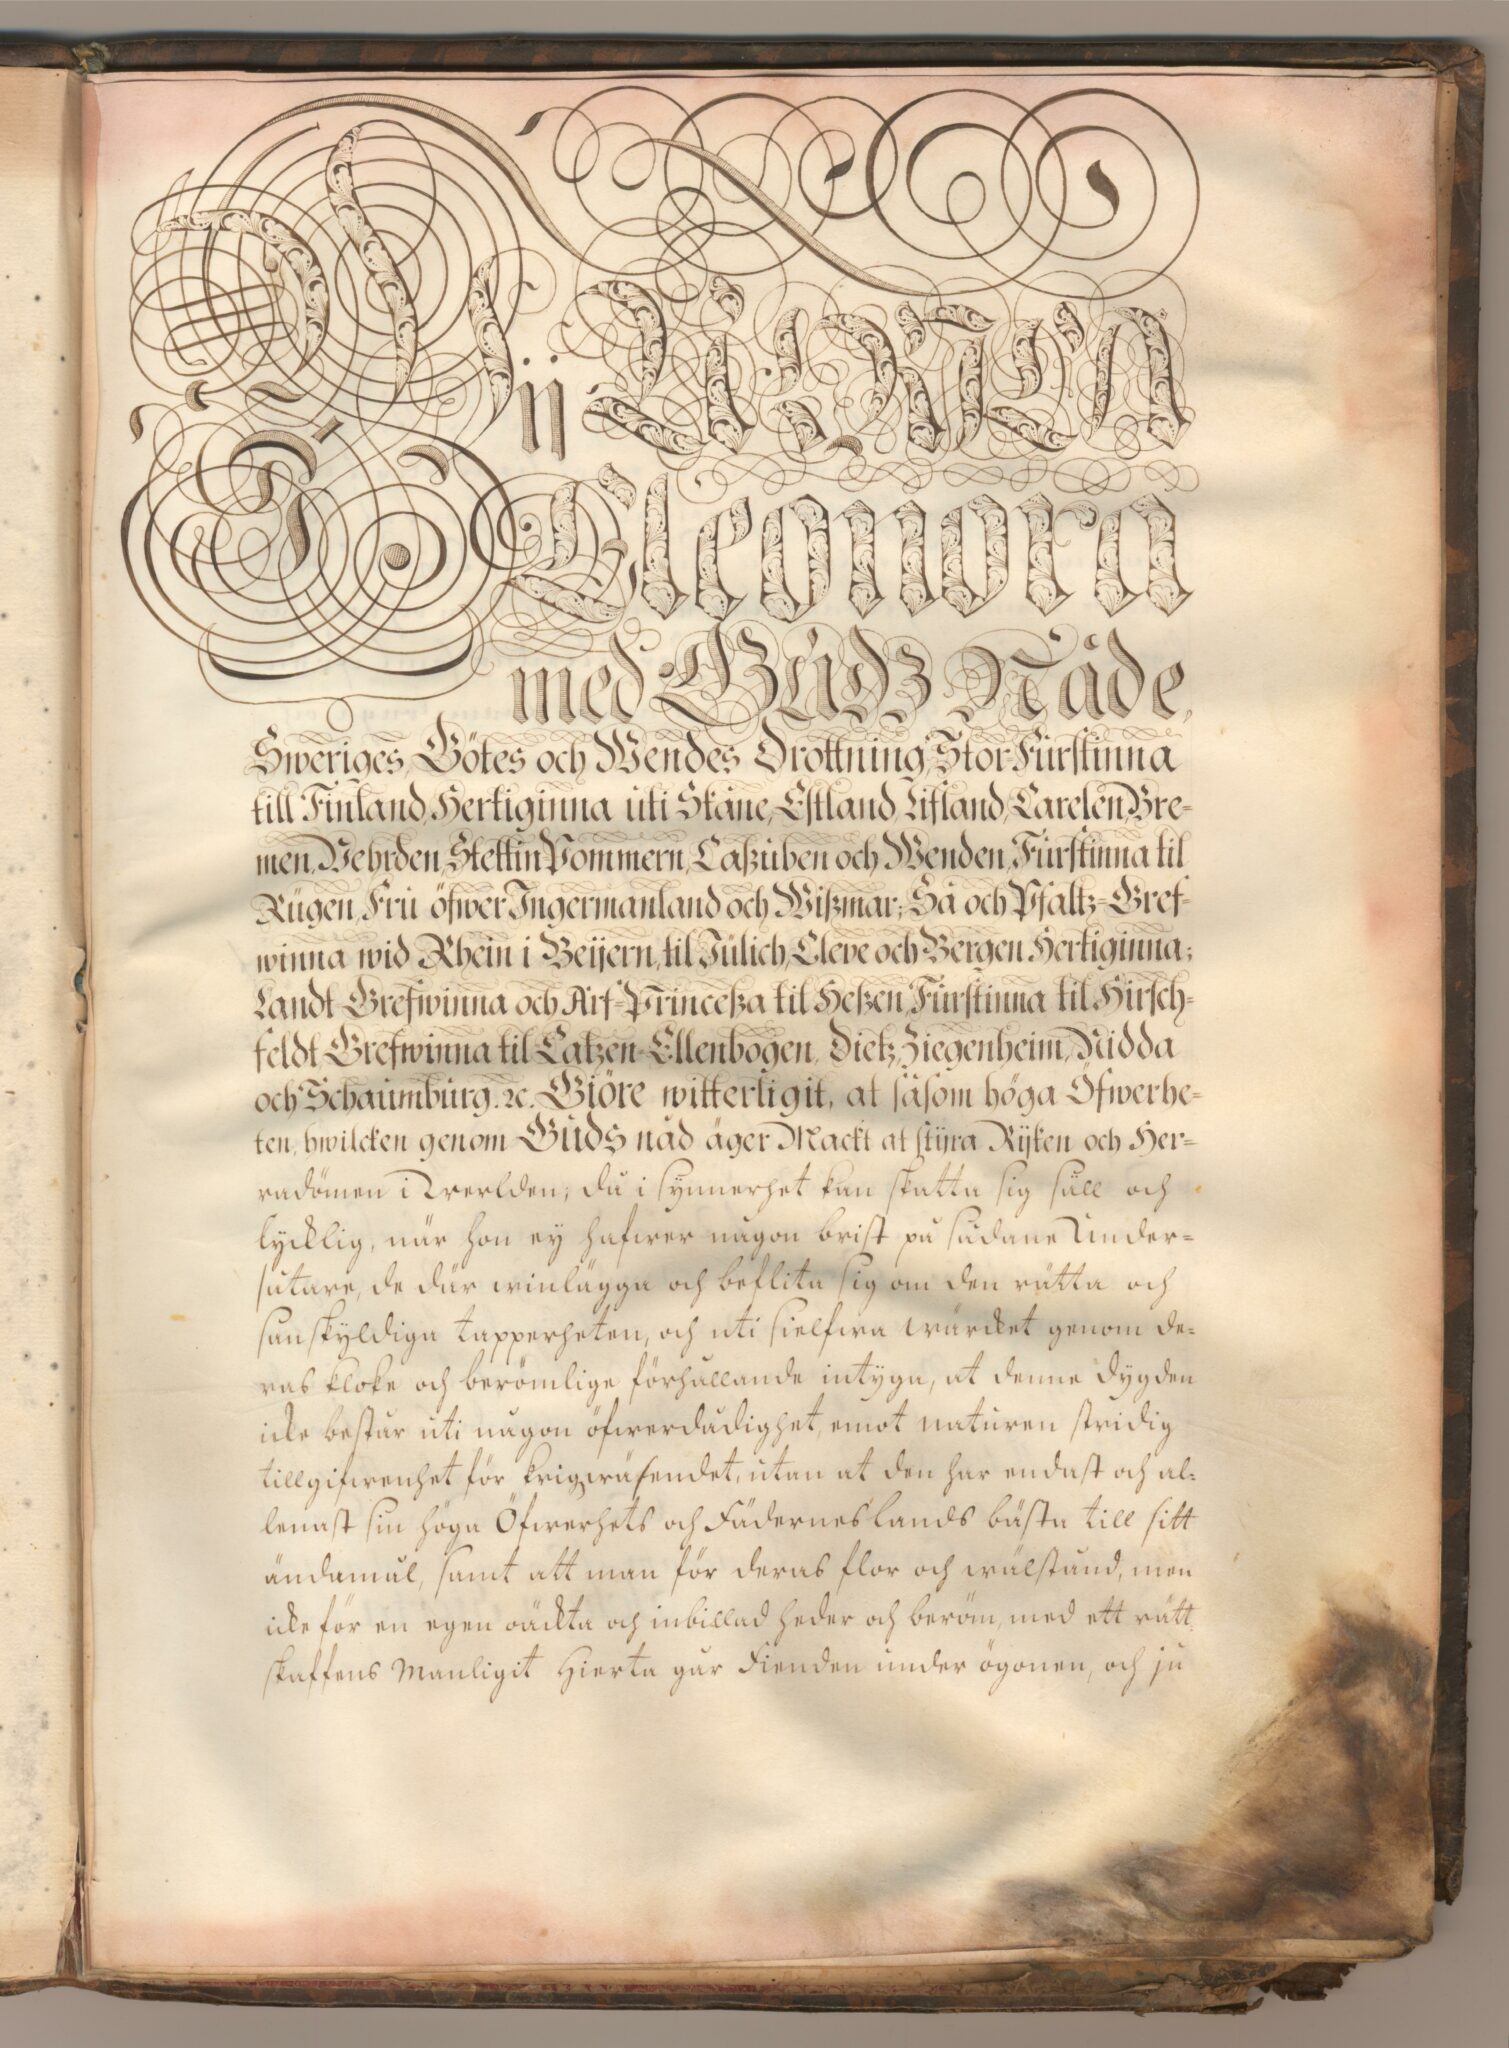 Wij ULRICA
Eleonora
med Gudz Nåde,
Sweriges, Götes och Wendes Drottning, Stor-Furstinna
till Finland, Hertiginna uti Skåne, Estland, Lifland, Carelen, Bre-
men, Vehrden, Stettin Pommern, Caßuben och Wenden, Furstinna til
Rügen, Fru öfwer Ingermanland och Wißmar; Så och Pfaltz-Gref-
winna wid Rhein i Beijern, til Jülich, Cleve och Bergen Hertiginna;
Landt Grefwinna och Arf-Princeßa til Heßen, Furstinna til Hirsch-
feldt, Grefwinna til Catzen-Ellenbogen, Dietz, Ziegenheim, Nidda
och Schaumburg. ꝛc. Giöre witterligit, at såsom höga Öfwerhe-
ten, hwilcken genom Guds nåd äger Mackt at styra Ryken och Her-
radömen i Werlden; då i synnerhet kan skatta sig säll och
lycklig, när hon ey hafwer någon brist på sådane Under-
såtare, de där winlägga och beflita sig om den rätta och
sanskyldiga tapperheten, och uti sielfwa wärcket genom de-
ras kloke och berömlige förhållande intyga, at denne dygden
icke består uti någon öfwerdådighet, emot naturen stridig
tillgifwenhet för krigzwäsendet, utan at den har endast och al-
lenast sin höga Öfwerhets och Fäderneslands bästa till sitt
ändamål, samt att man för deras flor och wälstånd, men
icke för en egen oäckta och inbillad heder och beröm, med ett rätt
skaffens Manligit Hierta går Fienden under ögonen, och ju